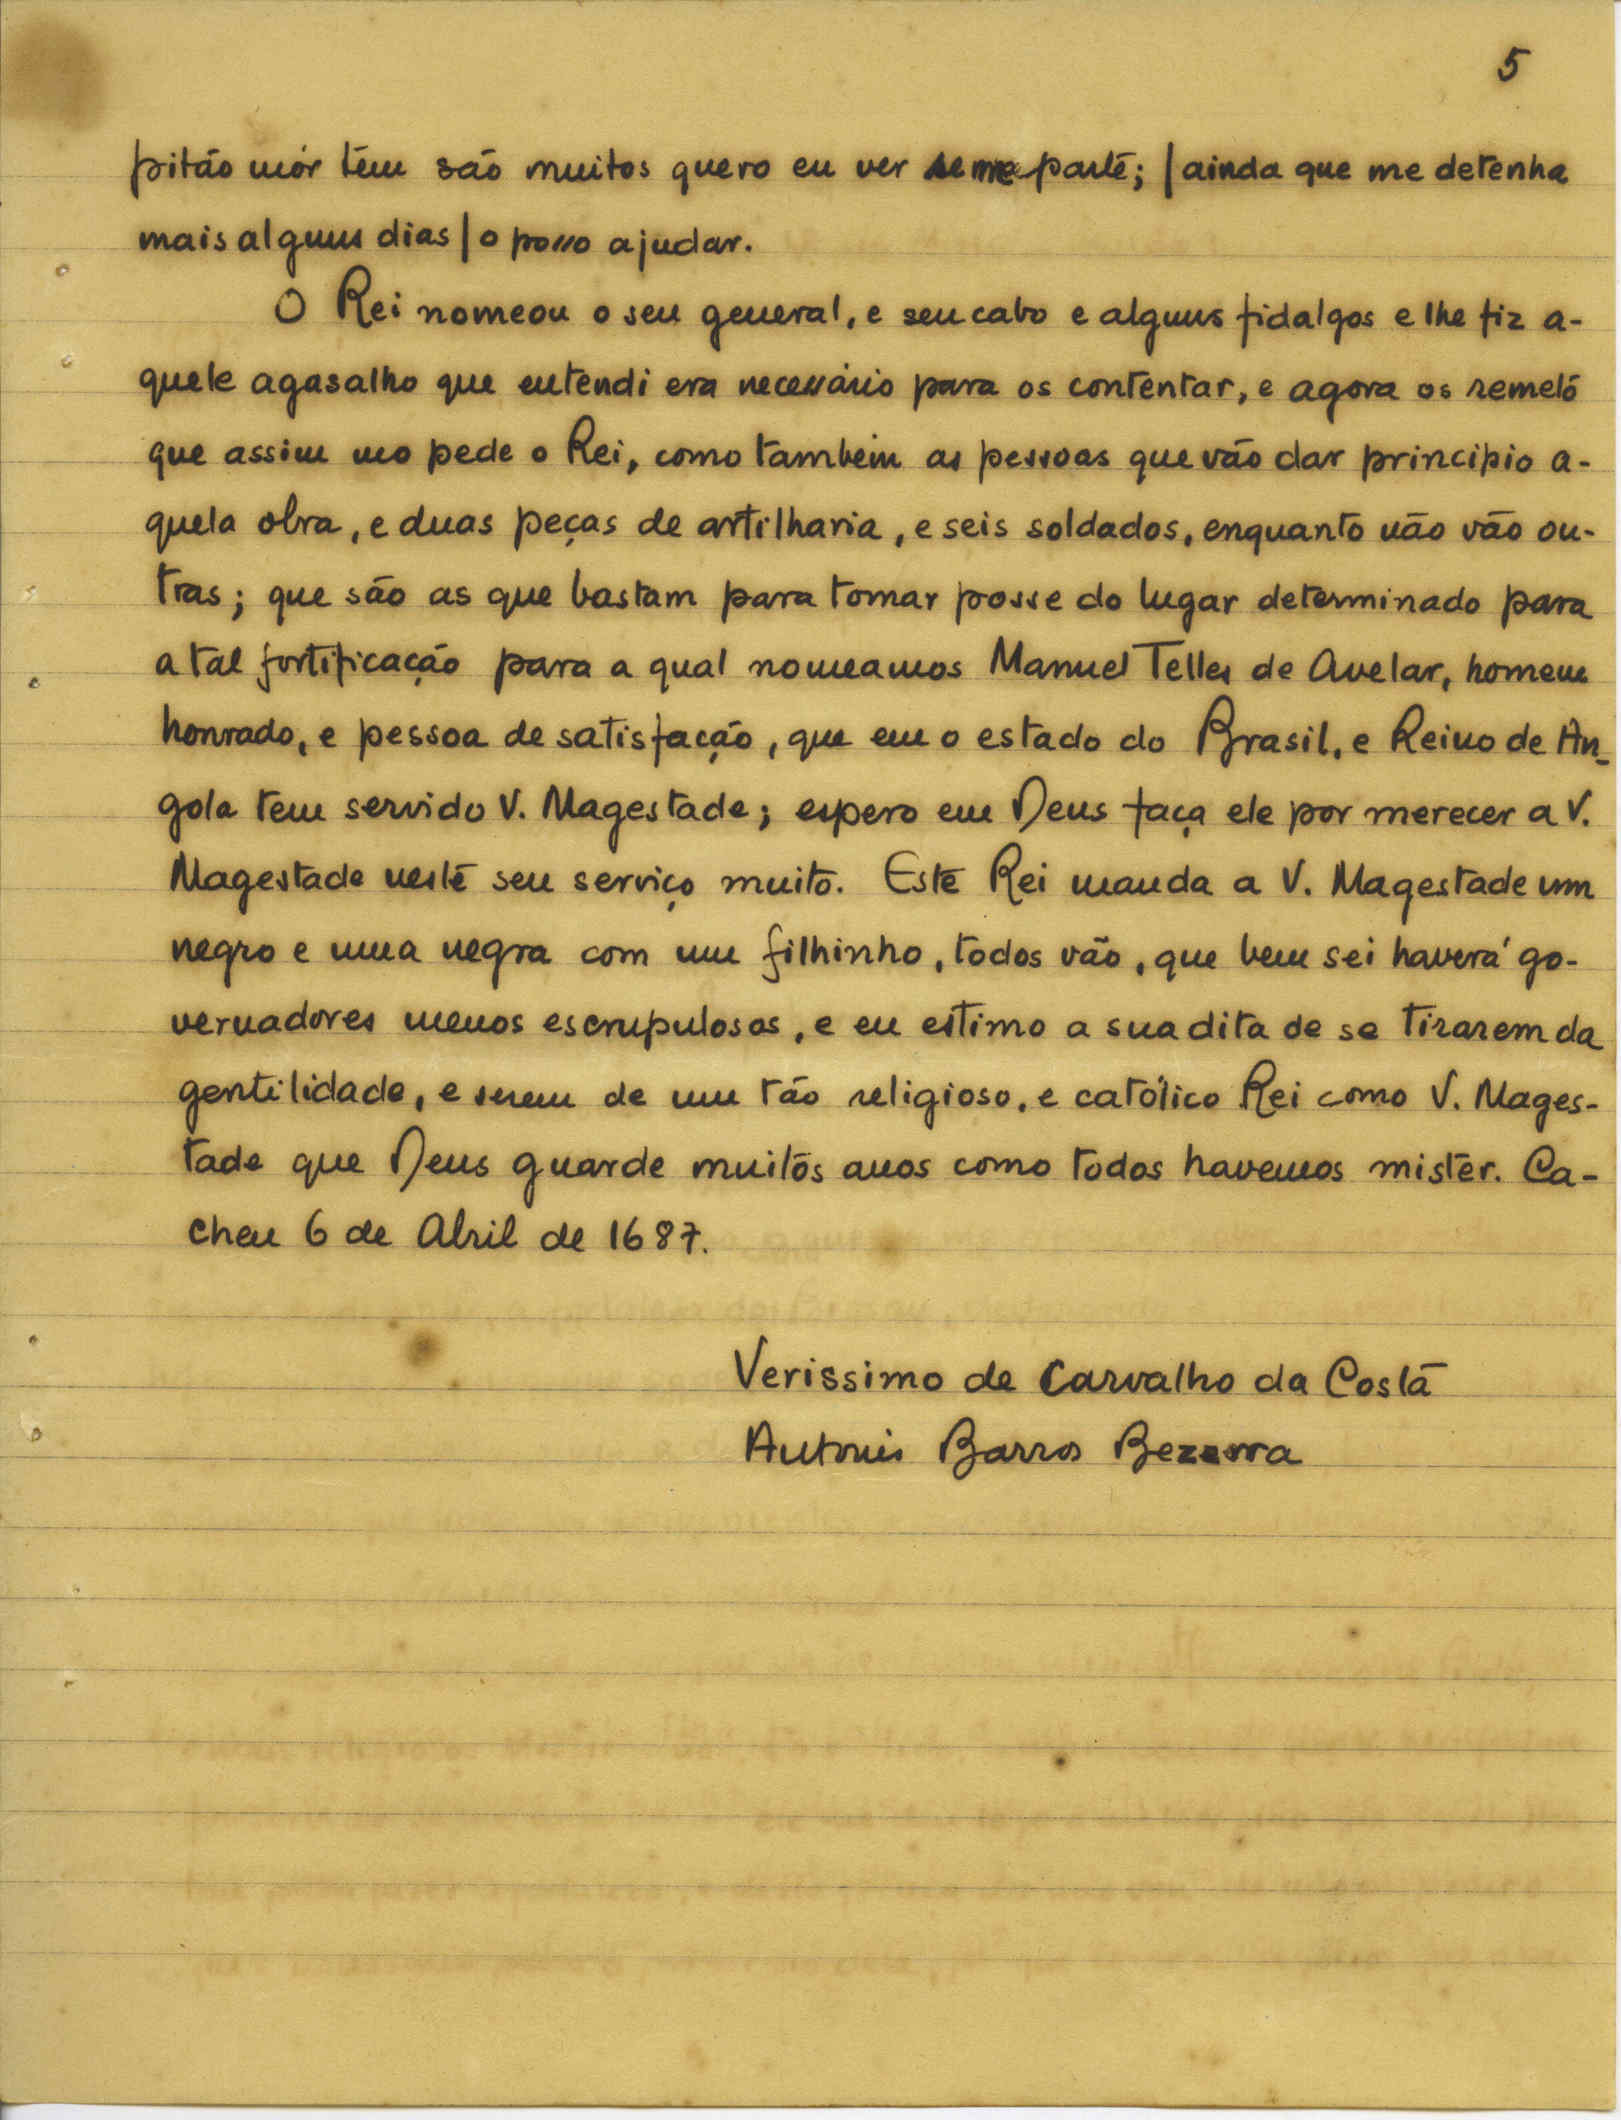 5
pitão mór têm são muitos quero eu ver parte; | ainda que me detenha
mais alguns dias | o posso ajudar.
O Rei nomeou o seu general, e seu cabo e alguns fidalgos e lhe fiz a-
quele agasalho que entendi era necessário para os contentar, e agora os remeto
que assim mo pede o Rei, como também as pessoas que vão dar principio a-
quela obra, e duas peças de artilharia, e seis soldados, enquanto não vão ou-
tras; que são as que bastam para tomar posse do lugar determinado para
a tal fortificação para a qual nomeamos Manuel Telles de Avelar, homem
honrado, e pessoa de satisfação, que em o estado do Brasil, e Reino de An-
gola tem servido V. Magestade; espero em Deus faça ele por merecer a V.
Magestade neste seu serviço muito. Este Rei manda a V. Magestade um
negro e uma negra com um filhinho, todos vão, que bem sei haverá go-
vernadores menos escrupulosos, e eu estimo a sua dita de se tirarem da
gentilidade, e serem de um tão religioso, e católico Rei como V. Mages-
tade que Deus guarde muitos anos como todos havemos mister. Ca-
cheu 6 de Abril de 1687.
Verissimo de Carvalho da Costa
Antonio Barros Bezerra